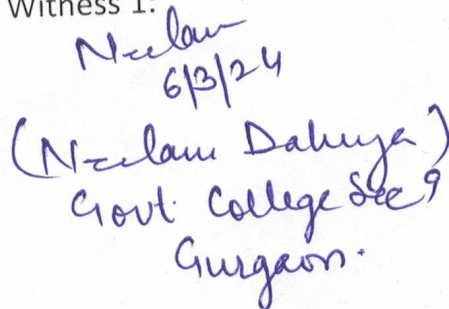 Witness 1:
Neelam
6/3/24
(Neelam Dahuja)
Govt. College Sec 9
Gurgaon.